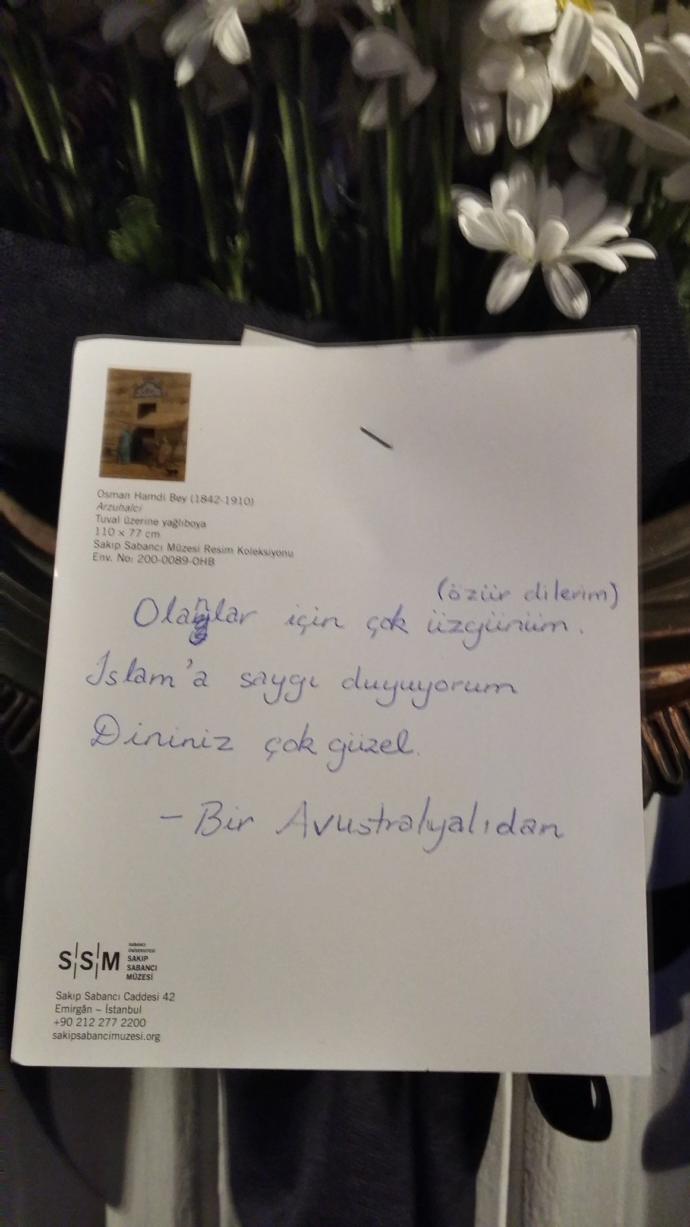 Osman Hamdi Bey (1842-1910)
Arzuhalci
Tuval üzerine yağlıboya
110 x 77 cm
Sakıp Sabancı Müzesi Resim Koleksiyonu
Env. No: 200-0089-OHB
(özür dilerim)
Olanlar için çok üzgünüm.
İslam'a saygı duyuyorum
Dininiz çok güzel.
- Bir Avustralyalıdan
SSM
SABANCI
ÜNİVERSİTESİ
SAKIP
SABANCI
MÜZESİ
Sakıp Sabancı Caddesi 42
Emirgân – İstanbul
+90 212 277 2200
sakipsabancimuzesi.org